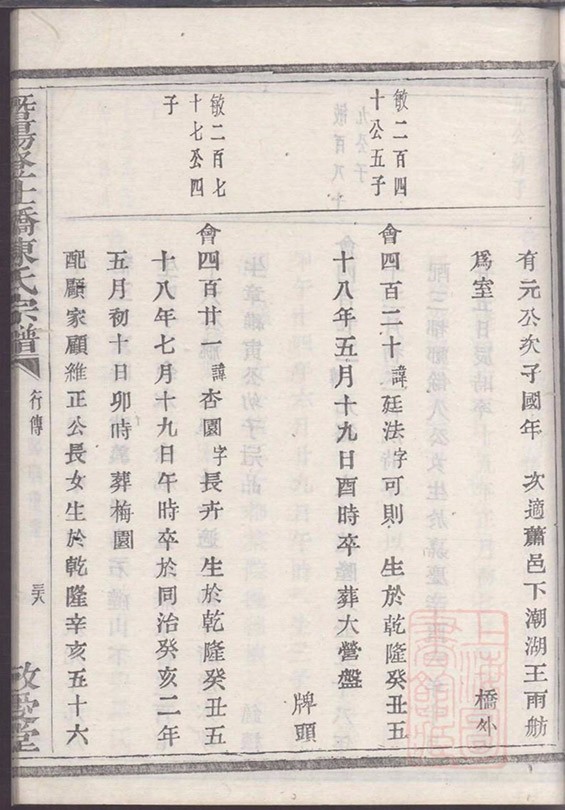 有元公次子國年　次適蕭邑下潮湖王雨舫
爲室　橋外
敏二百四
十公五子
會四百二十諱廷法字可則　生於乾隆癸丑五
十八年五月十九日酉時卒　葬大營盤
牌頭
敏二百七
十七公四
子
會四百廿一諱杏園字長卉　生於乾隆癸丑五
十八年七月十九日午時卒於同治癸亥二年
五月初十日卯時葬梅園
配顧家顧維正公長女生於乾隆辛亥五十六
暨陽登仕橋陳氏宗譜
行傳
敬愛堂